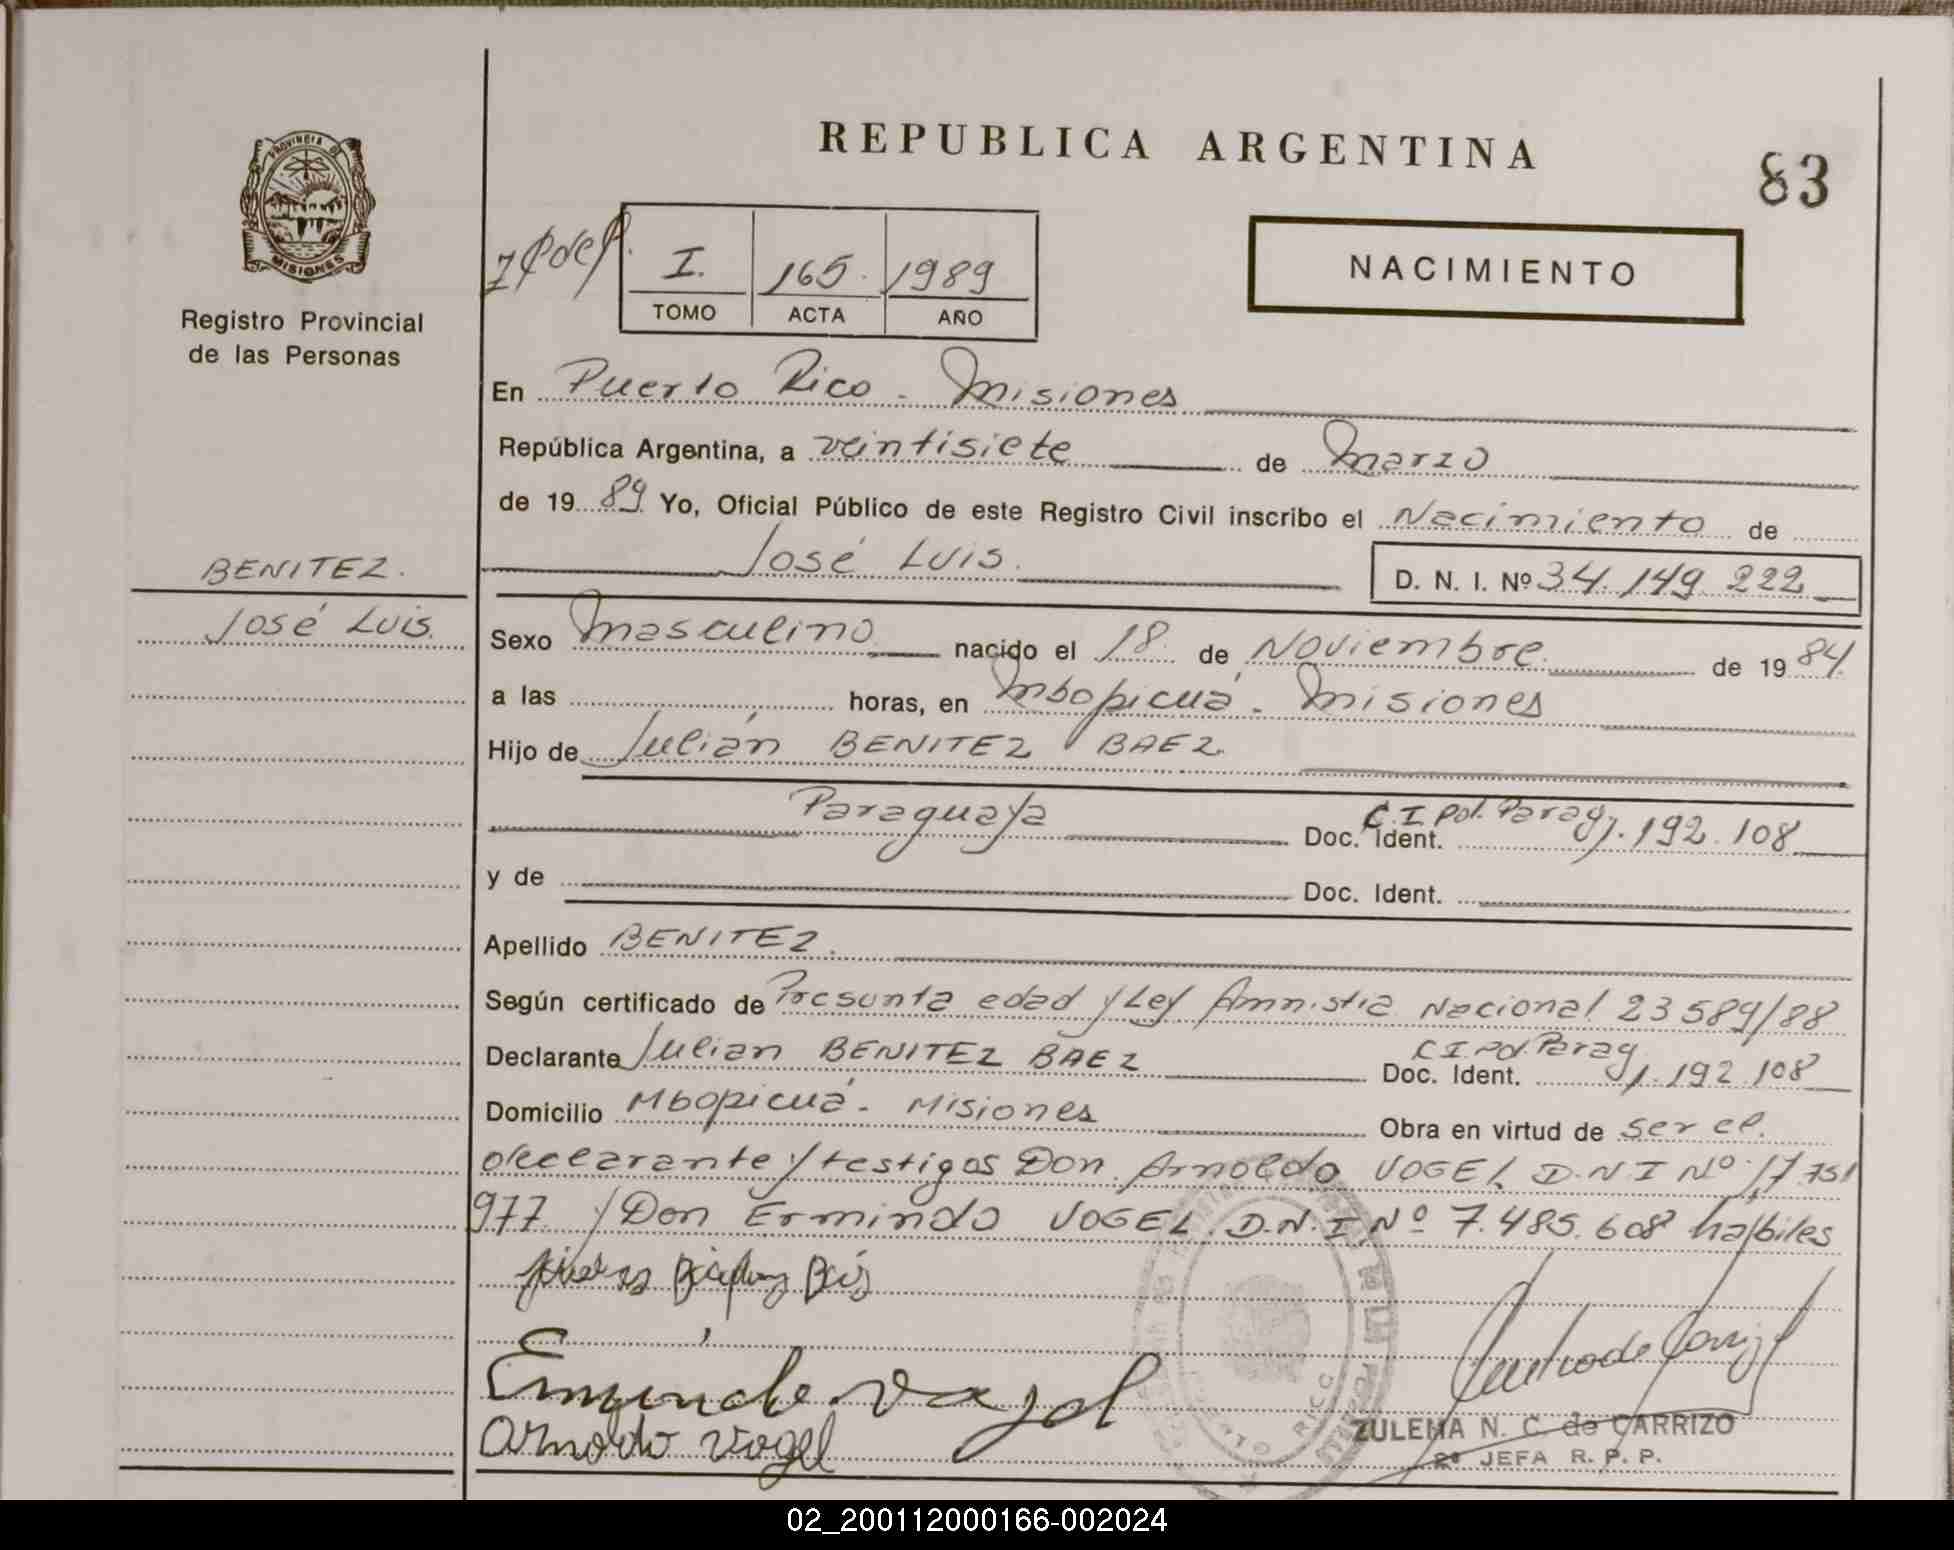 REPUBLICA ARGENTINA
83
PROVINCIA DE
MISIONES
Registro Provincial
de las Personas
I. 165. 1989
TOMO ACTA AÑO
NACIMIENTO
En Puerto Rico - Misiones
República Argentina, a veintisiete de Marzo
de 19 89 Yo, Oficial Público de este Registro Civil inscribo el Nacimiento de
José Luis.
D. N. I. Nº 34.149.222
BENITEZ.
José Luis.
Sexo Masculino nacido el 18 de Noviembre de 19 84
a las horas, en Mbopicuá - Misiones
Hijo de Julián BENITEZ BAEZ
Paraguaya Doc. Ident. C.I. Pol. Parag. 1.192.108
y de Doc. Ident.
Apellido BENITEZ.
Según certificado de Presunta edad y Ley Amnistia Nacional 23589/88
Declarante Julian BENITEZ BAEZ Doc. Ident. C.I. Pol. Parag. 1.192.108
Domicilio Mbopicuá - Misiones Obra en virtud de ser el
declarante y testigos Don Arnoldo VOGEL D.N.I Nº 17.751
977 y Don Ermindo VOGEL D.N.I. Nº 7.485.608 habiles
Arnoldo Vogel
PUERTO RICO
ZULEMA N. C. de CARRIZO
2ª JEFA R. P. P.
02_200112000166-002024